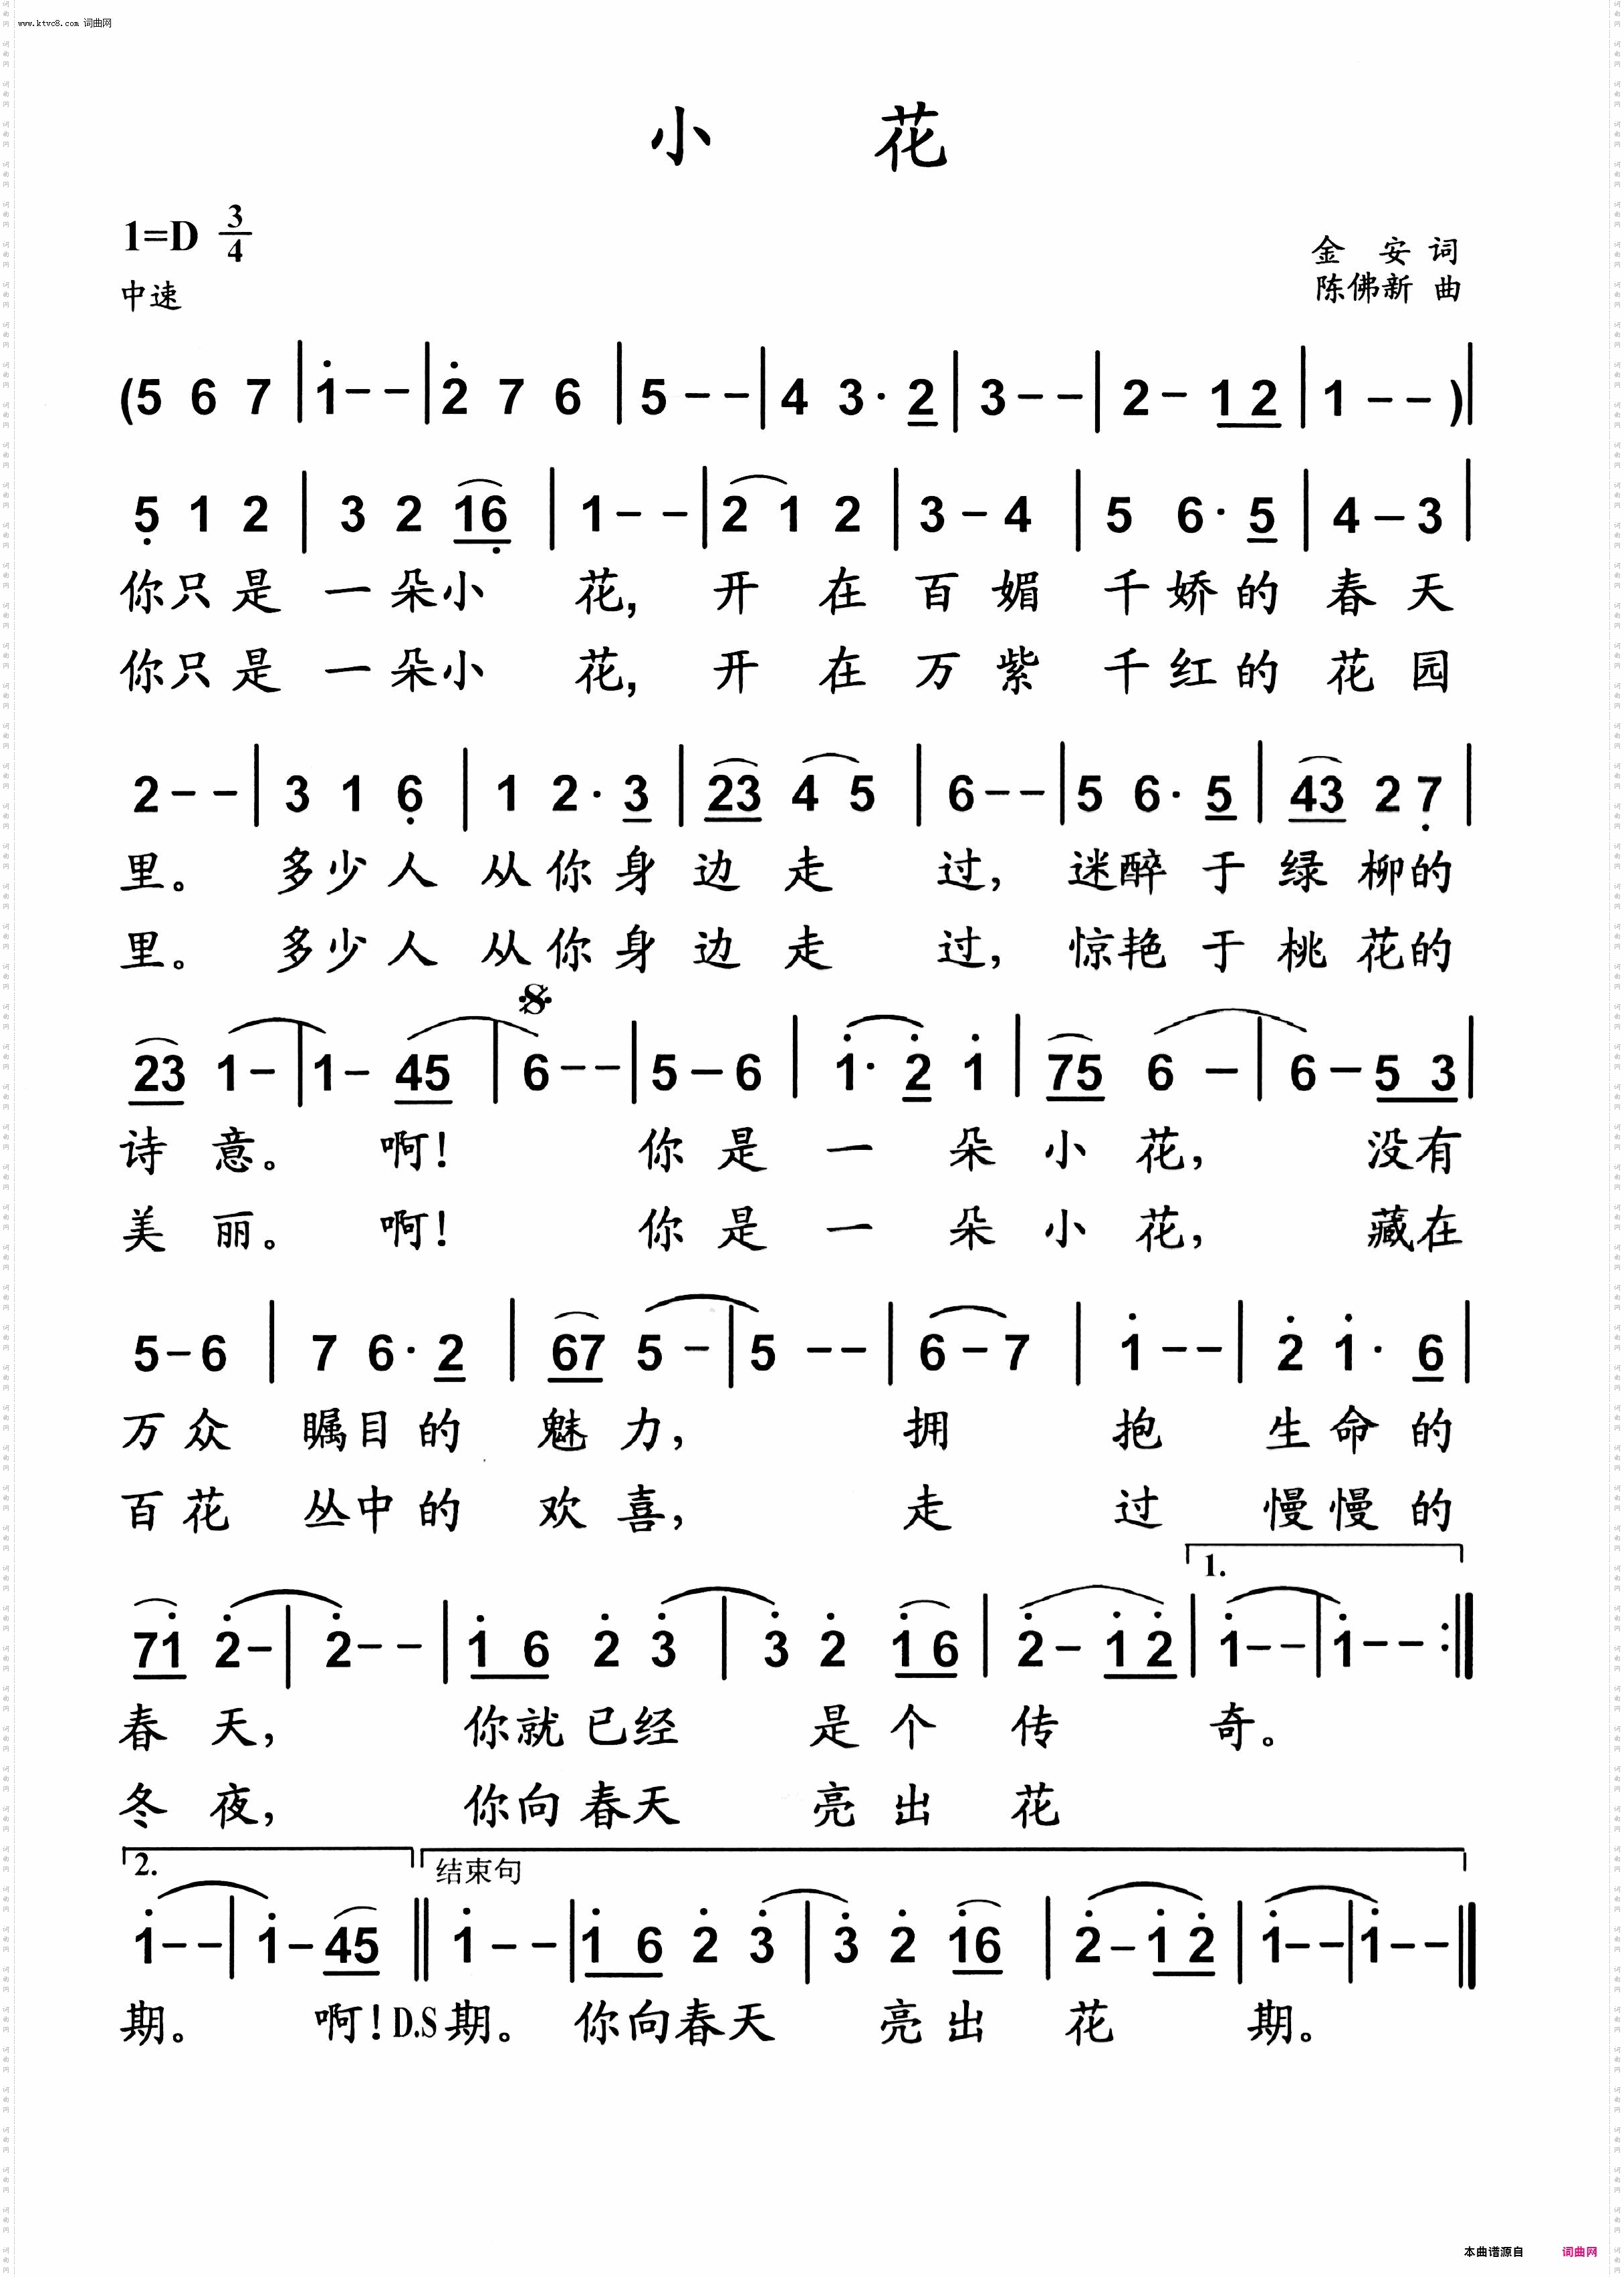 www.ktvc8.com 词曲网
小 花
1=D 3/4
金 安 词
中速
陈佛新 曲
(5 6 7 | i - - | 2̇ 7 6 | 5 - - | 4 3· 2 | 3 - - | 2 - 1 2 | 1 - - ) |
5̣ 1 2 | 3 2 16̣ | 1 - - | 2 1 2 | 3 - 4 | 5 6· 5 | 4 - 3 |
你只是 一朵小 花, 开 在 百 媚 千娇的 春 天
你只是 一朵小 花, 开 在 万 紫 千红的 花 园
2 - - | 3 1 6̣ | 1 2· 3 | 23 4 5 | 6 - - | 5 6· 5 | 43 2 7̣ |
里。 多少人 从你身 边 走 过, 迷醉于 绿 柳的
里。 多少人 从你身 边 走 过, 惊艳于 桃 花的
𝄋
23 1 - | 1 - 45 | 6 - - | 5 - 6 | 1̇· 2̇ 1̇ | 75 6 - | 6 - 5 3 |
诗 意。 啊! 你 是 一 朵 小 花, 没有
美 丽。 啊! 你 是 一 朵 小 花, 藏在
5 - 6 | 7 6· 2 | 67 5 - | 5 - - | 6 - 7 | 1̇ - - | 2̇ 1̇· 6 |
万 众 瞩目的 魅 力, 拥 抱 生命的
百 花 丛中的 欢 喜, 走 过 慢慢的
1.
71̇ 2̇ - | 2̇ - - | 1̇ 6 2̇ 3̇ | 3̇ 2̇ 1̇ 6 | 2̇ - 1̇ 2̇ | 1̇ - - | 1̇ - - :‖
春 天, 你就已经 是 个 传 奇。
冬 夜, 你向春天 亮 出 花
2. 结束句
1̇ - - | 1̇ - 45 ‖ 1̇ - - | 1̇ 6 2̇ 3̇ | 3̇ 2̇ 1̇6 | 2̇ - 1̇ 2̇ | 1̇ - - | 1̇ - - ‖
期。 啊! D.S 期。 你向春天 亮 出 花 期。
本曲谱源自 词曲网